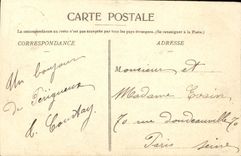 CARTE POSTALE
La correspondance au recto n'est pas acceptée par tous les pays étrangers. (Se renseigner à la Poste.)
CORRESPONDANCE
ADRESSE
Un bonjour
de Périgueux
Monsieur et
Madame
70 rue Doudeauville 70
Paris
Seine